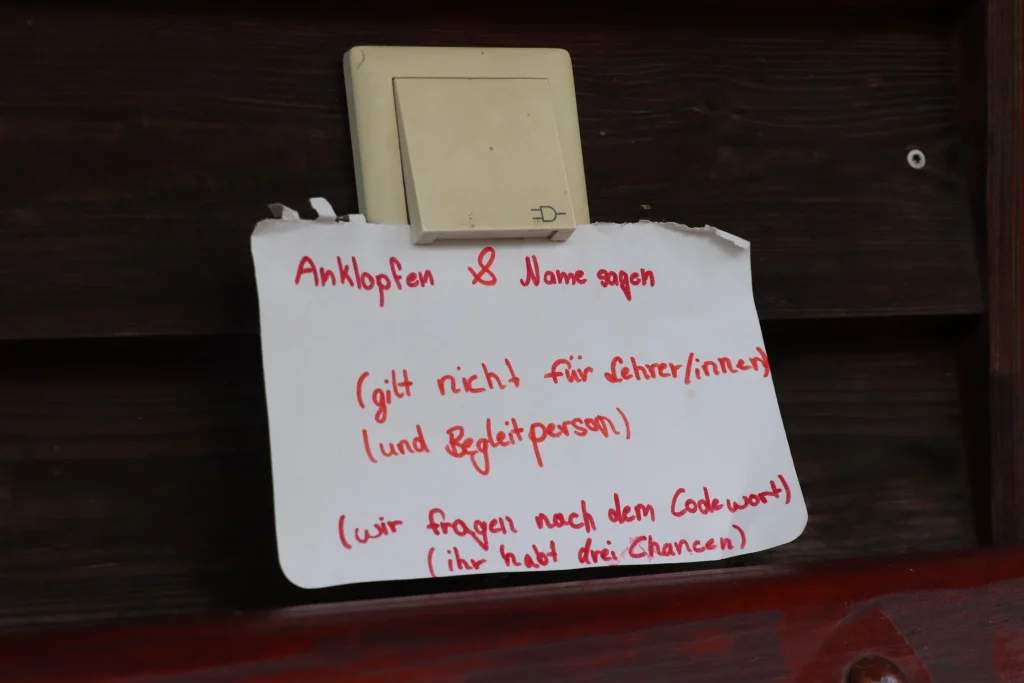 Anklopfen & Name sagen
(gilt nicht für Lehrer/innen)
(und Begleitperson)
(wir fragen nach dem Codewort)
(ihr habt drei Chancen)